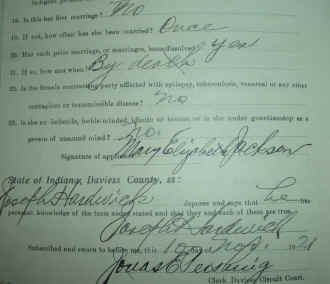 18. Is this her first marriage? No
19. If not, how often has she been married? Once
20. Has such prior marriage, or marriages, been dissolved? Yes
21. If so, how and when? By death
22. Is the female contracting party afflicted with epilepsy, tuberculosis, venereal or any other
contagious or transmissible disease? No
23. Is she an imbecile, feeble-minded, idiotic or insane, or is she under guardianship as a
person of unsound mind? No.
Signature of applicant Mary Elizabeth Jackson
State of Indiana, Daviess County, ss:
Joseph Hardwick deposes and says that he has
personal knowledge of the facts above stated and that they and each of them are true.
Joseph Hardwick
Subscribed and sworn to before me, this 19 1921
Jonas E.
Clerk Daviess Circuit Court.